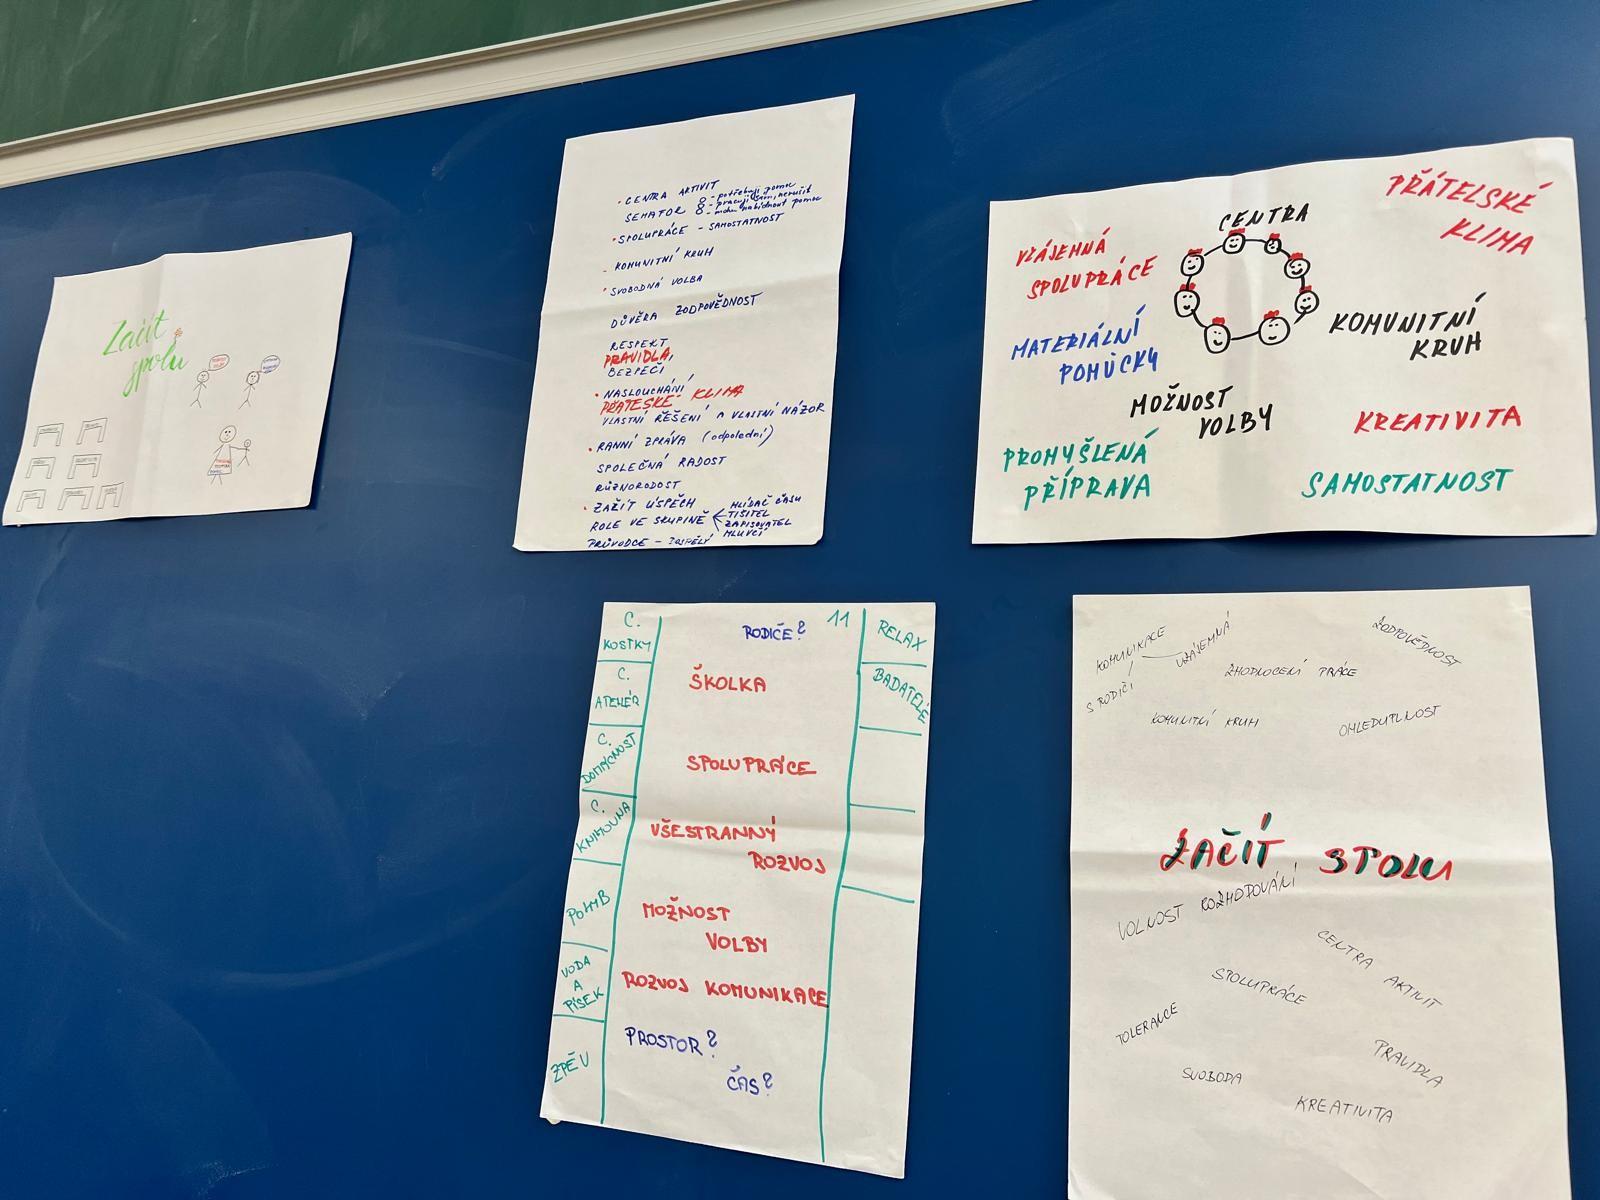 Začít
spolu
• CENTRA AKTIVIT
SEMAFOR 8 - potřebuji pomoc
- pracuji sám, nerušit
- mohu nabídnout pomoc
• SPOLUPRÁCE - SAMOSTATNOST
• KOMUNITNÍ KRUH
• SVOBODNÁ VOLBA
DŮVĚRA ZODPOVĚDNOST
RESPEKT
PRAVIDLA,
BEZPEČÍ
• NASLOUCHÁNÍ
PŘÁTESKÉ KLIMA
VLASTNÍ ŘEŠENÍ A VLASTNÍ NÁZOR
• RANNÍ ZPRÁVA (odpolední)
SPOLEČNÁ RADOST
RŮZNORODOST
• ZAŽÍT ÚSPĚCH
ROLE VE SKUPINĚ
HLÍDAČ ČASU
TIŠITEL
ZAPISOVATEL
MLUVČÍ
PRŮVODCE - DOSPĚLÝ
CENTRA
PŘÁTELSKÉ
KLIMA
VZÁJEMNÁ
SPOLUPRÁCE
MATERIÁLNÍ
POMŮCKY
KOMUNITNÍ
KRUH
MOŽNOST
VOLBY
KREATIVITA
PROMYŠLENÁ
PŘÍPRAVA
SAMOSTATNOST
C.
KOSTKY
C.
ATELIÉR
C.
DOMÁCNOST
C.
KNIHOVNA
POHYB
VODA
A
PÍSEK
ZPĚV
RODIČE?
11
ŠKOLKA
SPOLUPRÁCE
VŠESTRANNÝ
ROZVOJ
MOŽNOST
VOLBY
ROZVOJ KOMUNIKACE
PROSTOR?
ČAS?
RELAX
BADATELÉ
KOMUNIKACE
VZÁJEMNÁ
S RODIČI
ZODPOVĚDNOST
ZHODNOCENÍ PRÁCE
KOMUNITNÍ KRUH
OHLEDUPLNOST
ZAČÍT SPOLU
VOLNOST ROZHODOVÁNÍ
CENTRA AKTIVIT
SPOLUPRÁCE
TOLERANCE
PRAVIDLA
SVOBODA
KREATIVITA